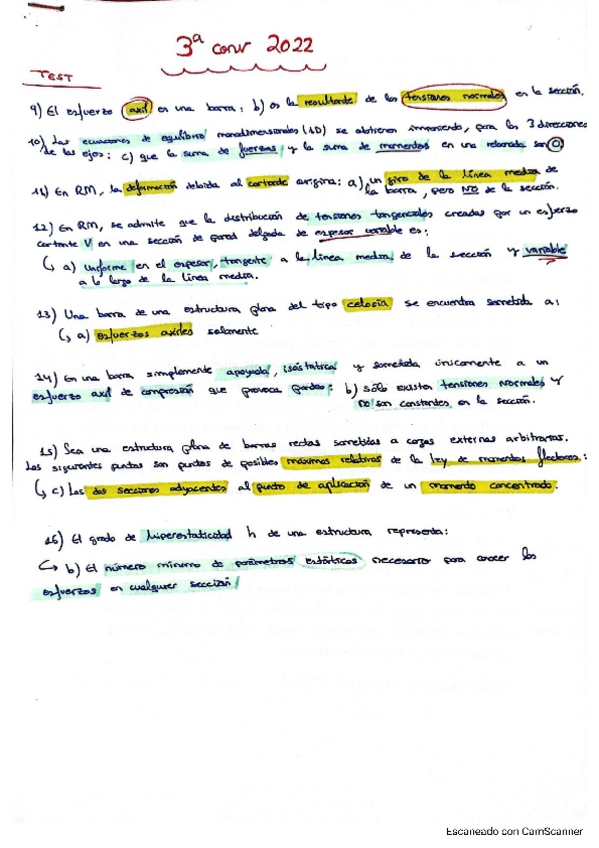 3ª conv 2022
TEST
9) El esfuerzo axil en una barra: b) es la resultante de las tensiones normales en la sección.
10) Las ecuaciones de equilibrio monodimensionales (1D) se obtienen imponiendo, para las 3 direcciones
de los ejes: c) que la suma de fuerzas y la suma de momentos en una rebanada son 0
11) En RM, la deformación debida al cortante origina: a) un giro de la línea media de
la barra, pero NO de la sección.
12) En RM, se admite que la distribución de tensiones tangenciales creadas por un esfuerzo
cortante V en una sección de pared delgada de espesor variable es:
↳ a) Uniforme en el espesor, tangente a la línea media de la sección y variable
a lo largo de la línea media.
13) Una barra de una estructura plana del tipo celosía se encuentra sometida a:
↳ a) esfuerzos axiles solamente
14) En una barra simplemente apoyada, isostática y sometida únicamente a un
esfuerzo axil de compresión que provoca pandeo: b) sólo existen tensiones normales y
no son constantes en la sección.
15) Sea una estructura plana de barras rectas sometidas a cargas externas arbitrarias.
Los siguientes puntos son puntos de posibles máximos relativos de la ley de momentos flectores:
↳ c) Las dos secciones adyacentes al punto de aplicación de un momento concentrado.
16) El grado de hiperestaticidad h de una estructura representa:
↳ b) El número mínimo de parámetros estáticos necesario para conocer los
esfuerzos en cualquier sección
Escaneado con CamScanner